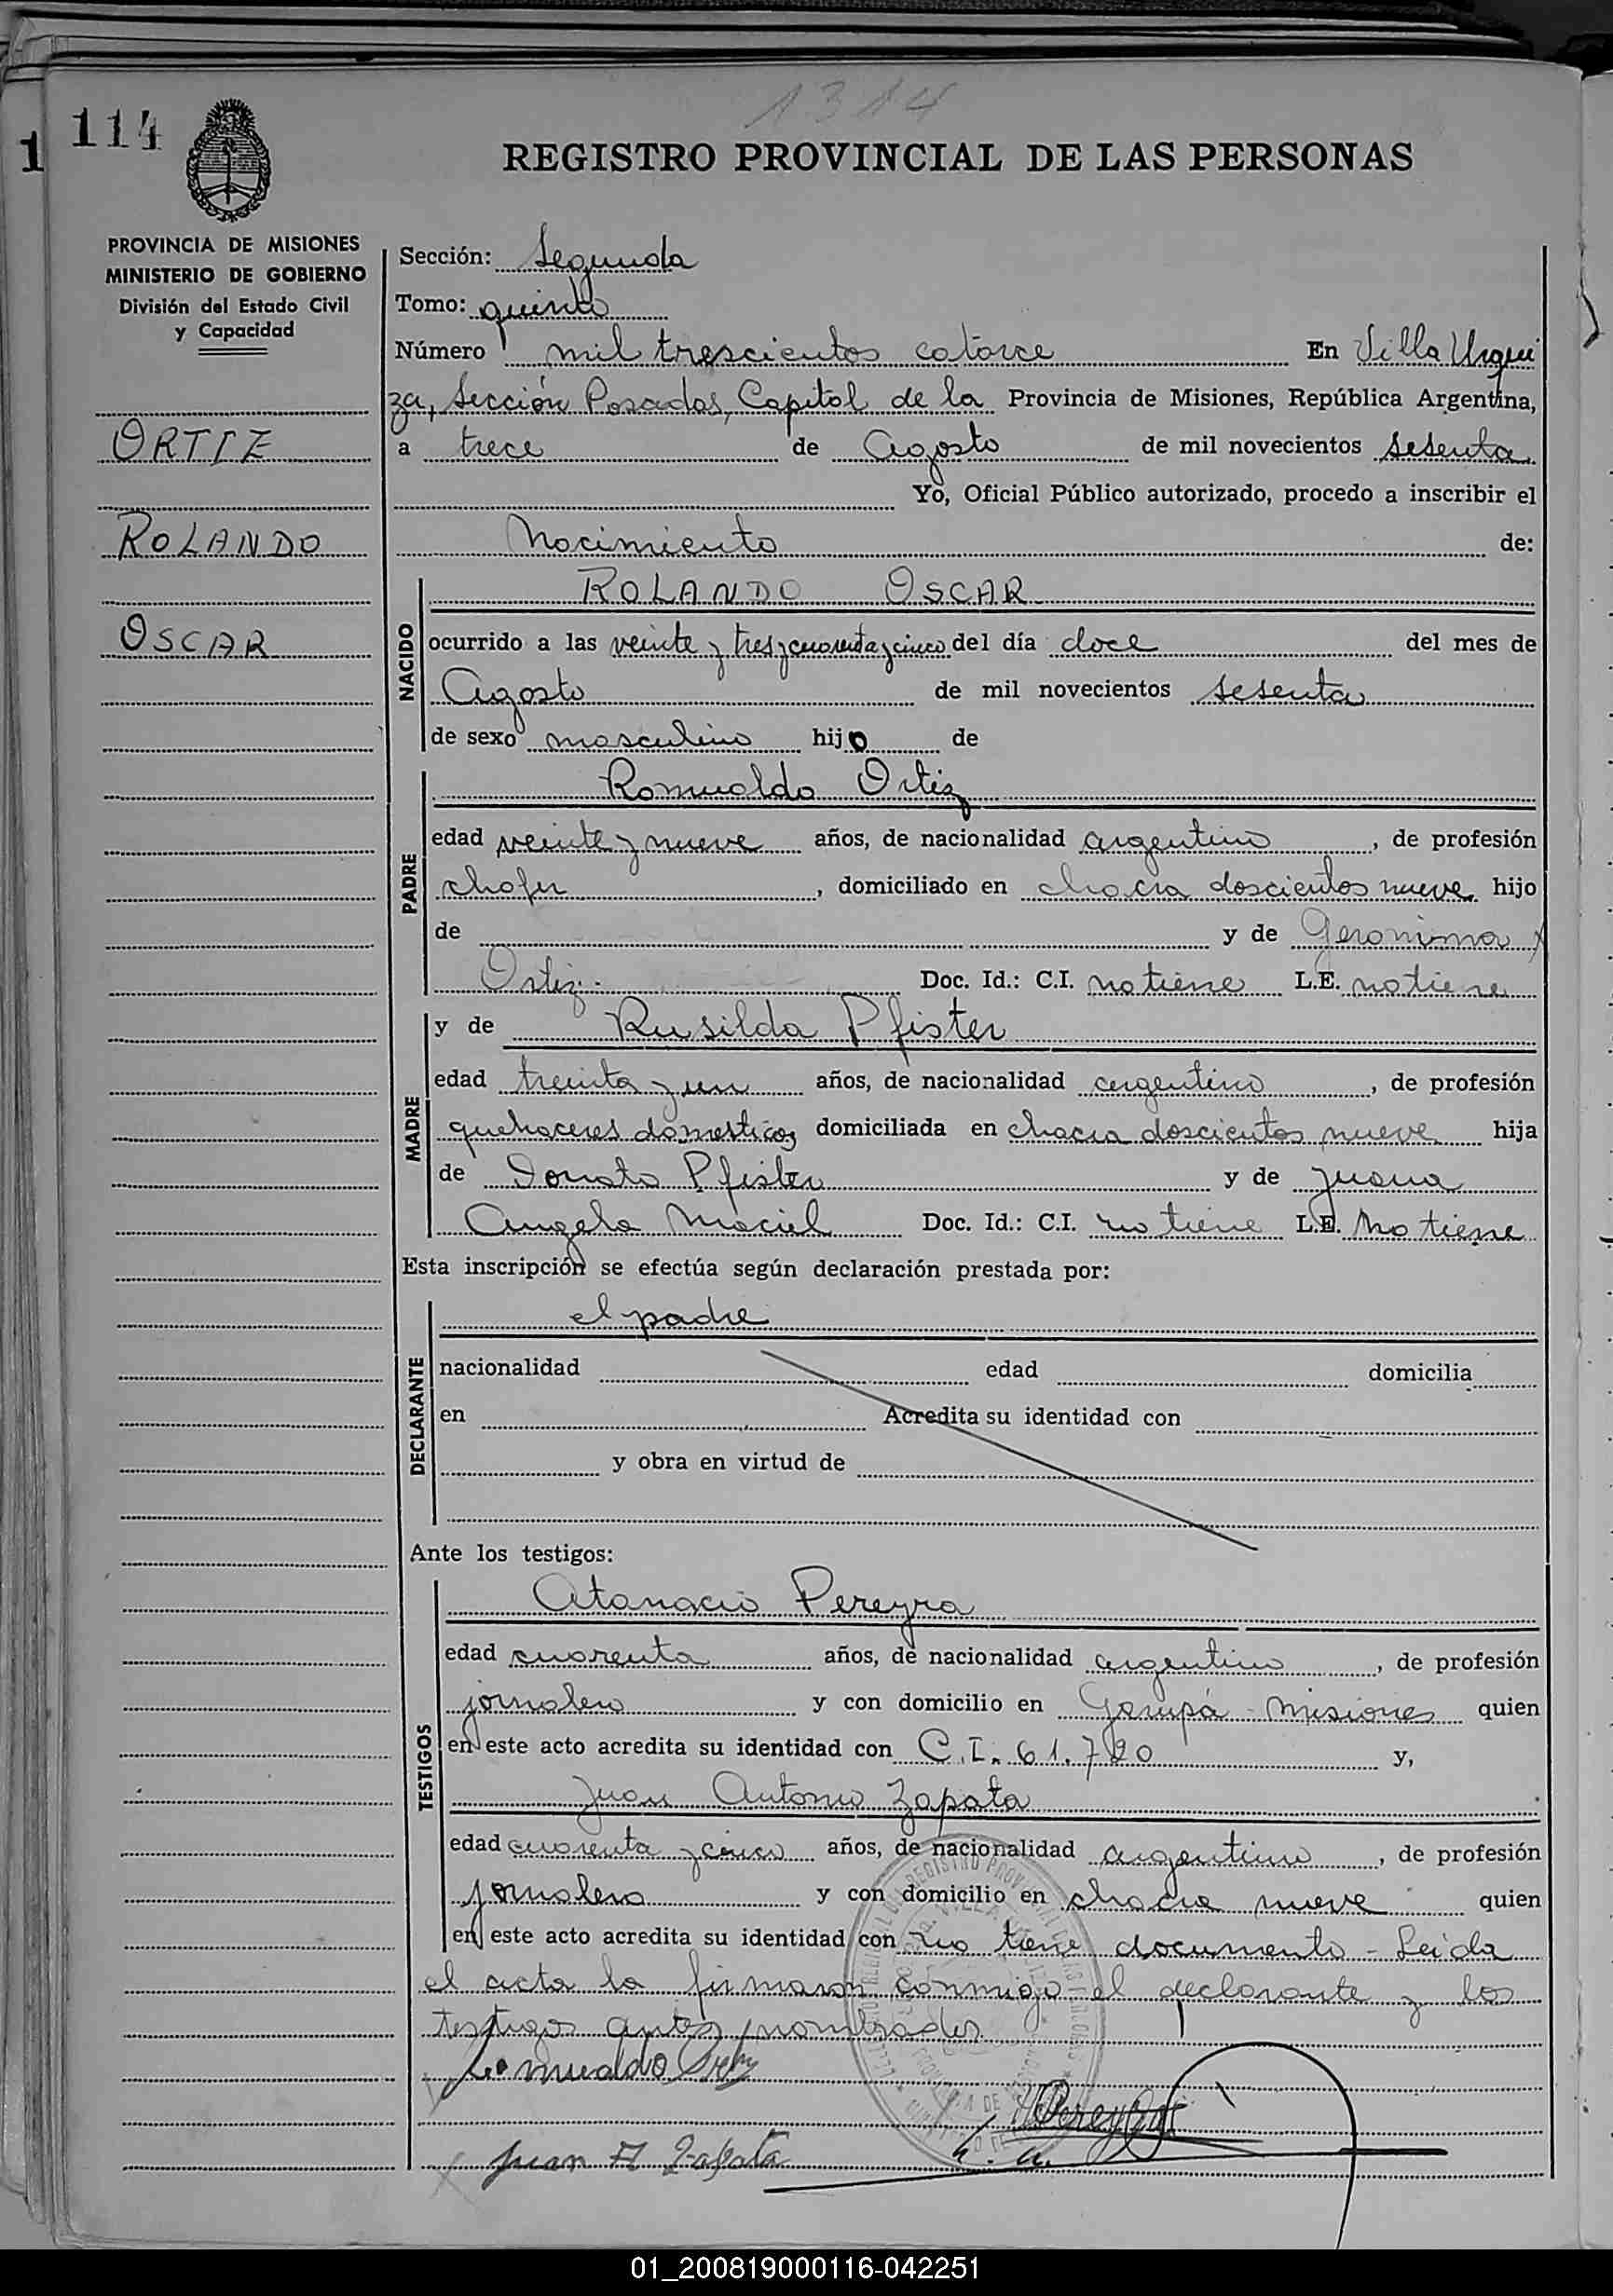 1314
114
1
REGISTRO PROVINCIAL DE LAS PERSONAS
PROVINCIA DE MISIONES
MINISTERIO DE GOBIERNO
División del Estado Civil
y Capacidad
ORTIZ
ROLANDO
OSCAR
Sección: Segunda
Tomo: quinto
Número mil trescientos catorce En Villa Urqui
za, Sección Posadas, Capital de la Provincia de Misiones, República Argentina,
a trece de Agosto de mil novecientos sesenta
Yo, Oficial Público autorizado, procedo a inscribir el
Nacimiento de:
NACIDO
ROLANDO OSCAR
ocurrido a las veinte y tres y cuarenta y cinco del día doce del mes de
Agosto de mil novecientos sesenta
de sexo masculino hijo de
PADRE
Romualdo Ortiz
edad veinte y nueve años, de nacionalidad argentino, de profesión
chofer, domiciliado en chacra doscientos nueve hijo
de y de Geronima
Ortiz. Doc. Id.: C.I. no tiene L.E. no tiene
MADRE
y de Rusilda Pfister
edad treinta y un años, de nacionalidad argentino, de profesión
quehaceres domesticos domiciliada en chacra doscientos nueve hija
de Donato Pfister y de Juana
Angela Maciel Doc. Id.: C.I. no tiene L.E. No tiene
Esta inscripción se efectúa según declaración prestada por:
DECLARANTE
el padre
nacionalidad edad domicilia
en Acredita su identidad con
y obra en virtud de
Ante los testigos:
TESTIGOS
Atanacio Pereyra
edad cuarenta años, de nacionalidad argentino, de profesión
jornalero y con domicilio en Garupá - Misiones quien
en este acto acredita su identidad con C.I. 61.720 y,
Juan Antonio Zapata
edad cuarenta y cinco años, de nacionalidad argentino, de profesión
jornalero y con domicilio en chacra nueve quien
en este acto acredita su identidad con no tiene documento - Leida
el acta la firmaron conmigo el declarante y los
testigos antes nombrados
Romualdo Ortiz
Pereyra
Juan A Zapata
01_200819000116-042251